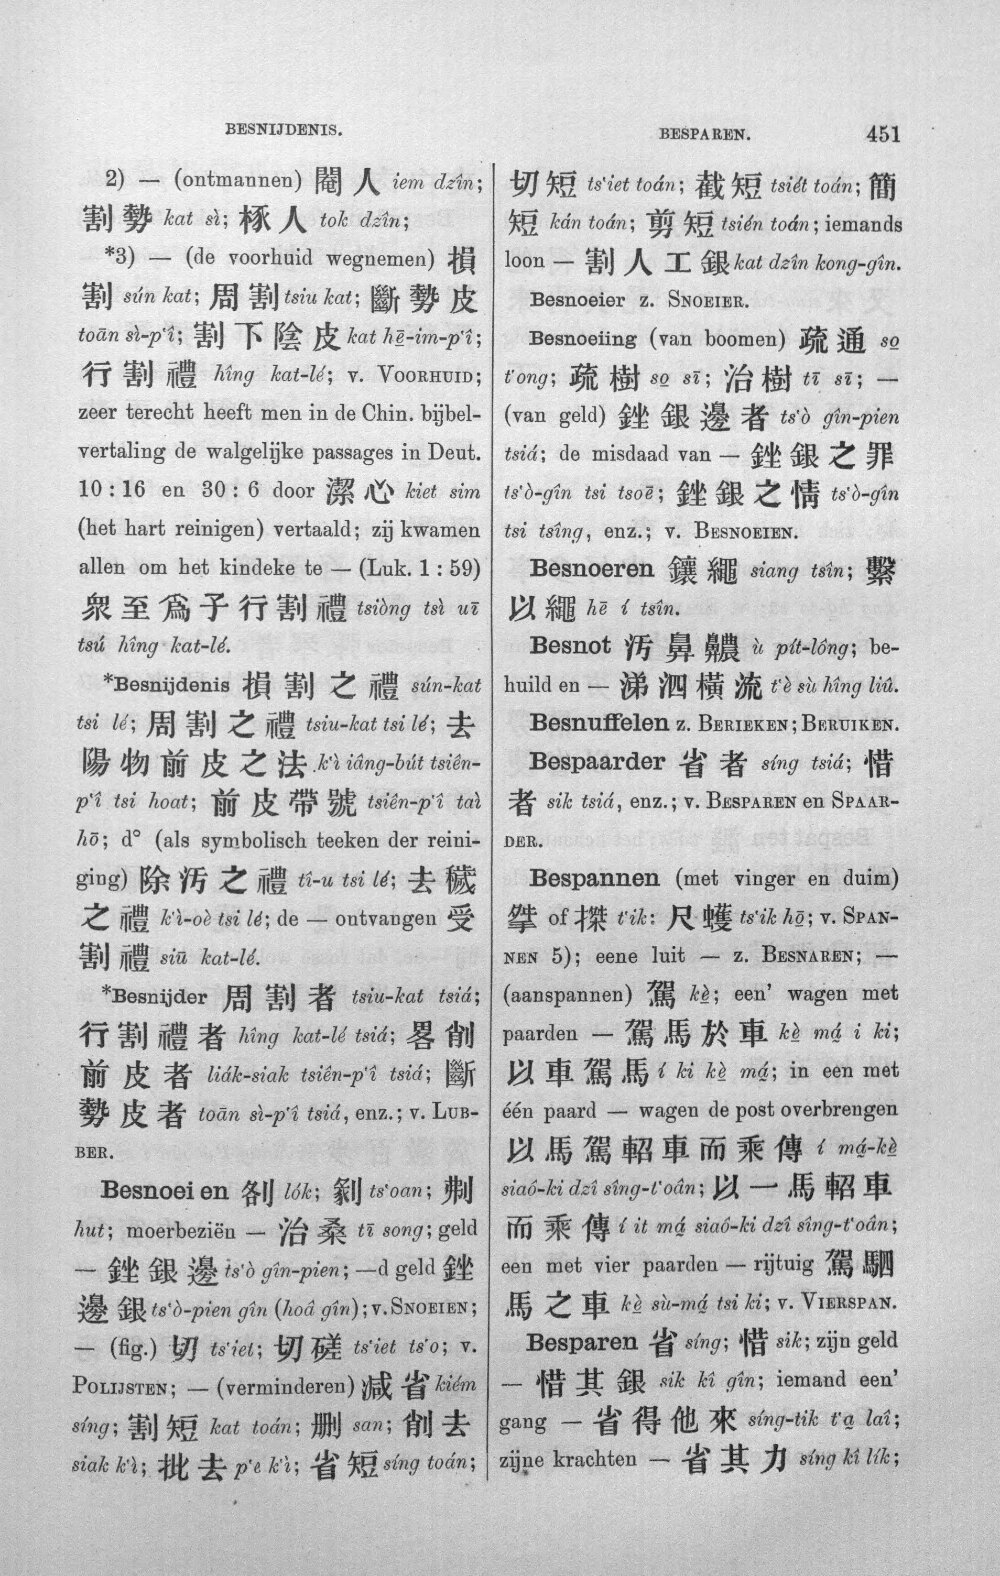 BESNIJDENIS.
BESPAREN.
451
2) — (ontmannen) 閹人 iem dzîn;
割勢 kat sì; 椓人 tok dzîn;
*3) — (de voorhuid wegnemen) 損
割 sún kat; 周割 tsiu kat; 斷勢皮
toān sì-p‘î; 割下陰皮 kat hē-im-p‘î;
行割禮 hîng kat-lé; v. VOORHUID;
zeer terecht heeft men in de Chin. bijbel-
vertaling de walgelijke passages in Deut.
10 : 16 en 30 : 6 door 潔心 kiet sim
(het hart reinigen) vertaald; zij kwamen
allen om het kindeke te — (Luk. 1 : 59)
衆至爲子行割禮 tsiòng tsì uī
tsú hîng kat-lé.
*Besnijdenis 損割之禮 sún-kat
tsi lé; 周割之禮 tsiu-kat tsi lé; 去
陽物前皮之法 k‘ì iâng-bút tsiên-
p‘î tsi hoat; 前皮帶號 tsiên-p‘î taì
hō; d° (als symbolisch teeken der reini-
ging) 除汚之禮 tî-u tsi lé; 去穢
之禮 k‘ì-oè tsi lé; de — ontvangen 受
割禮 siū kat-lé.
*Besnijder 周割者 tsiu-kat tsiá;
行割禮者 hîng kat-lé tsiá; 畧削
前皮者 liák-siak tsiên-p‘î tsiá; 斷
勢皮者 toān sì-p‘î tsiá, enz.; v. LUB-
BER.
Besnoeien 剠 lók; 剶 ts‘oan; 刜
hut; moerbeziën — 治桑 tī song; geld
— 銼銀邊 ts‘ò gîn-pien; —d geld 銼
邊銀 ts‘ò-pien gîn (hoâ gîn); v. SNOEIEN;
— (fig.) 切 ts‘iet; 切磋 ts‘iet ts‘o; v.
POLIJSTEN; — (verminderen) 減省 kiém
síng; 割短 kat toán; 删 san; 削去
siak k‘ì; 批去 p‘e k‘ì; 省短 síng toán;
切短 ts‘iet toán; 截短 tsiét toán; 簡
短 kán toán; 剪短 tsién toán; iemands
loon — 割人工銀 kat dzîn kong-gîn.
Besnoeier z. SNOEIER.
Besnoeiing (van boomen) 疏通 so̤
t‘ong; 疏樹 so̤ sī; 治樹 tī sī; —
(van geld) 銼銀邊者 ts‘ò gîn-pien
tsiá; de misdaad van — 銼銀之罪
ts‘ò-gîn tsi tsoē; 銼銀之情 ts‘ò-gîn
tsi tsîng, enz.; v. BESNOEIEN.
Besnoeren 鑲繩 siang tsîn; 繫
以繩 hē í tsîn.
Besnot 汚鼻齈 ù pít-lông; be-
huild en — 涕泗橫流 t‘è sù hîng liû.
Besnuffelen z. BERIEKEN; BERUIKEN.
Bespaarder 省者 síng tsiá; 惜
者 sik tsiá, enz.; v. BESPAREN en SPAAR-
DER.
Bespannen (met vinger en duim)
of t‘ik: 尺蠖 ts‘ik hō̤; v. SPAN-
NEN 5); eene luit — z. BESNAREN; —
(aanspannen) 駕 kè̤; een’ wagen met
paarden — 駕馬於車 kè̤ má̤ i ki;
以車駕馬 í ki kè̤ má̤; in een met
één paard — wagen de post overbrengen
以馬駕軺車而乘傳 í má̤-kè̤
siaó-ki dzî sîng-t‘oân; 以一馬軺車
而乘傳 í it má̤ siaó-ki dzî sîng-t‘oân;
een met vier paarden — rijtuig 駕駟
馬之車 kè̤ sù-má̤ tsi ki; v. VIERSPAN.
Besparen 省 síng; 惜 sik; zijn geld
— 惜其銀 sik kî gîn; iemand een’
gang — 省得他來 síng-tik t‘a̤ laî;
zijne krachten — 省其力 síng kî lík;